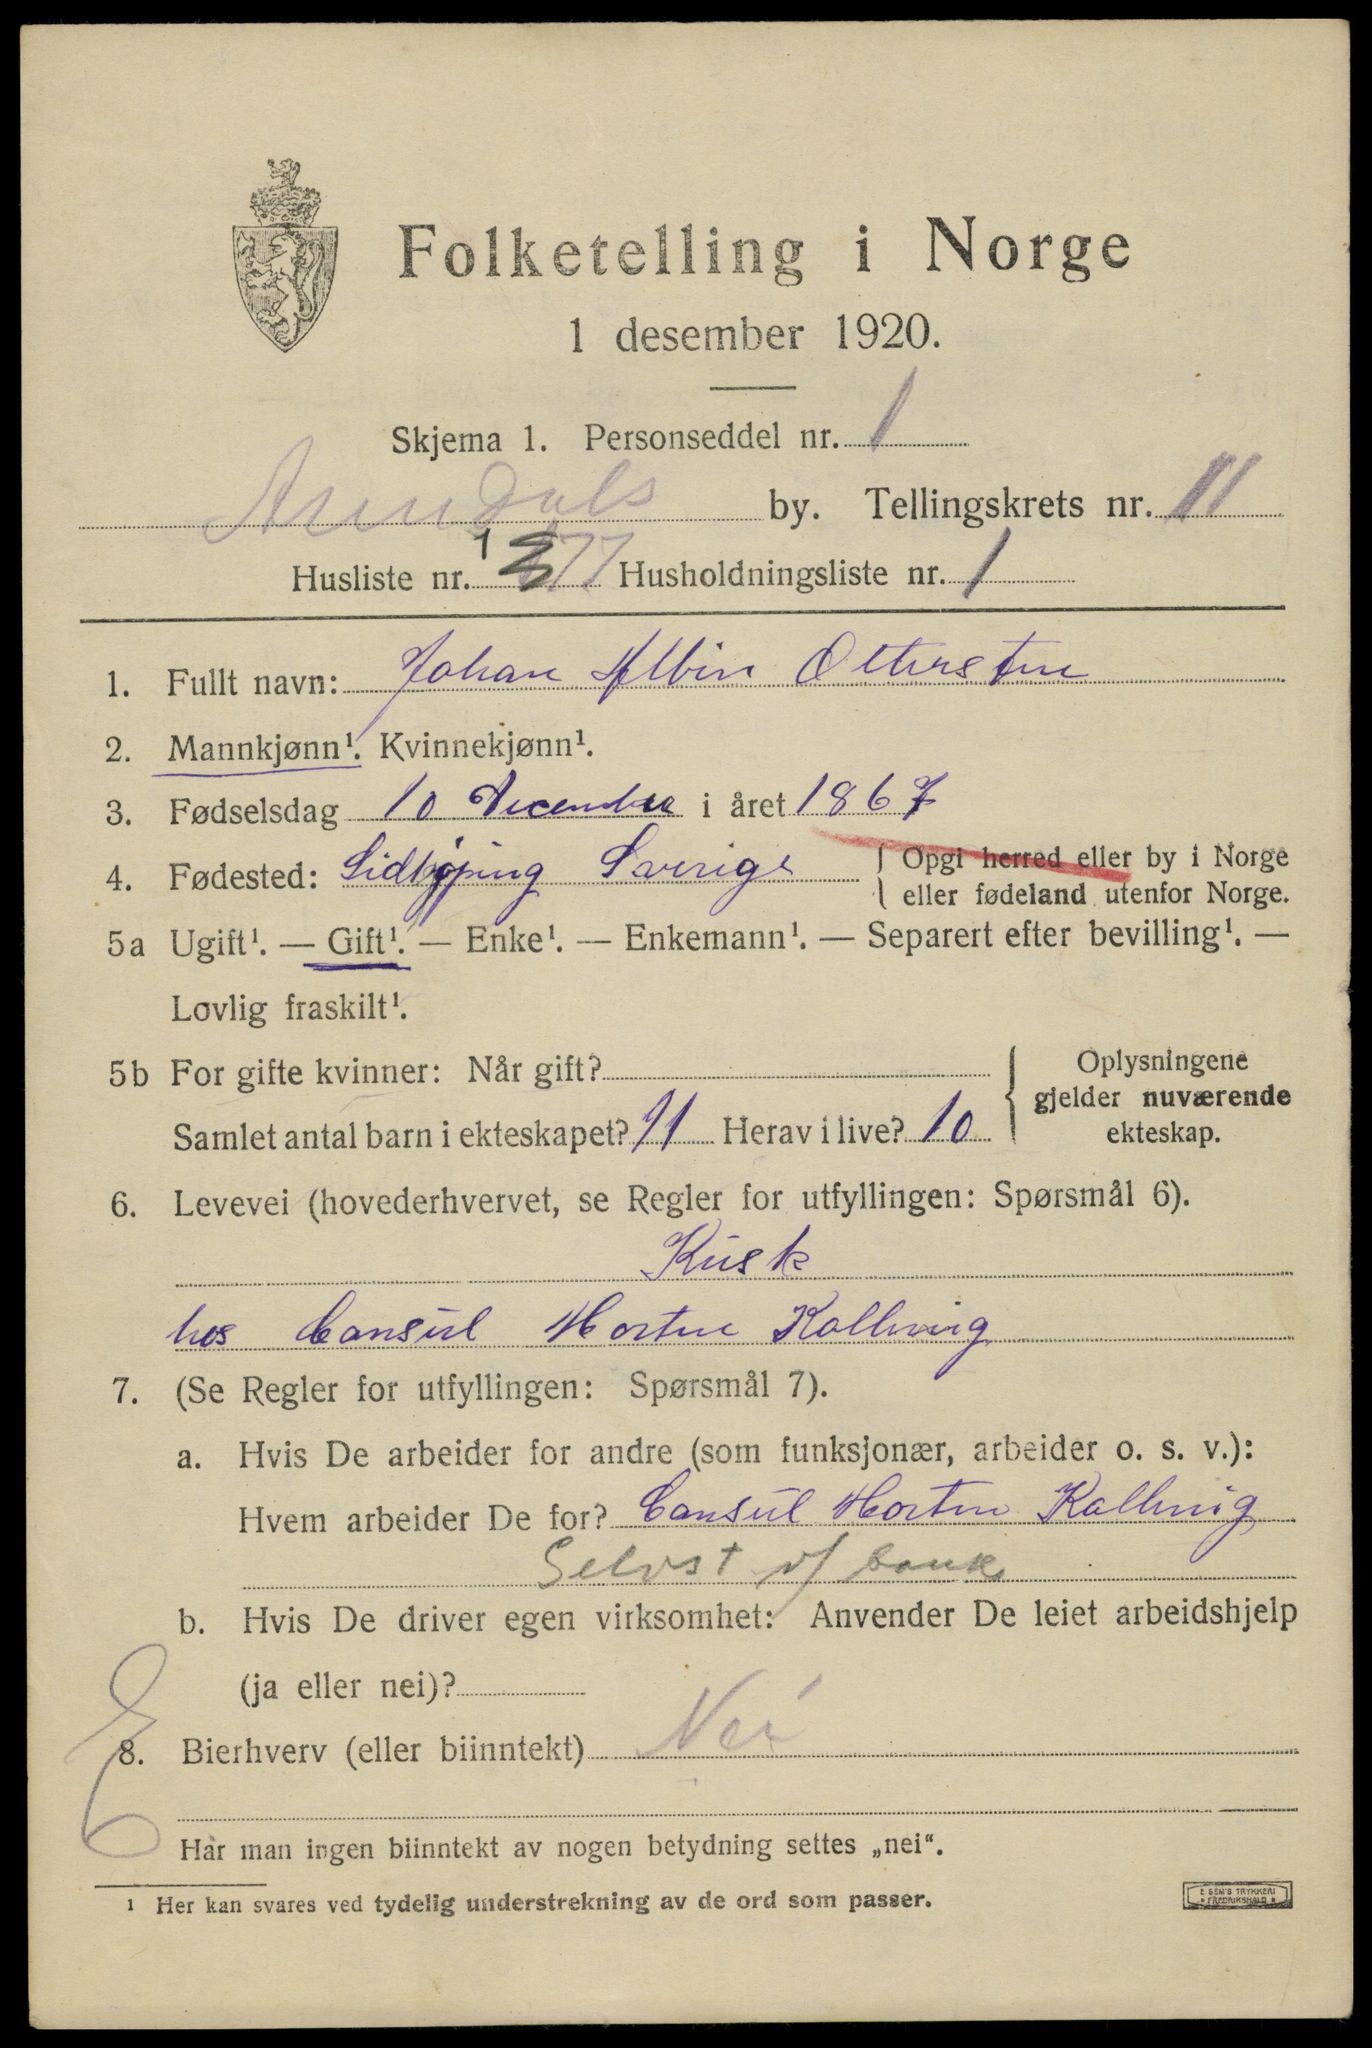 Folketelling i Norge
1 desember 1920.
Skjema 1. Personseddel nr. 1
Arendals by. Tellingskrets nr. 11
Husliste nr. 1 77 Husholdningsliste nr. 1
1. Fullt navn: Johan Albin Ottersten
2. Mannkjønn¹. Kvinnekjønn¹.
3. Fødselsdag 10 December i året 1867
4. Fødested: Lidkjøping Sverige { Opgi herred eller by i Norge
eller fødeland utenfor Norge.
5a Ugift¹. — Gift¹. — Enke¹. — Enkemann¹. — Separert efter bevilling¹. —
Lovlig fraskilt¹.
5b For gifte kvinner: Når gift?
Samlet antal barn i ekteskapet? 11 Herav i live? 10
Oplysningene
gjelder nuværende
ekteskap.
6. Levevei (hovederhvervet, se Regler for utfyllingen: Spørsmål 6).
Kusk
hos Consul Morten Kallevig
7. (Se Regler for utfyllingen: Spørsmål 7).
a. Hvis De arbeider for andre (som funksjonær, arbeider o. s. v.):
Hvem arbeider De for? Consul Morten Kallevig
Selvst
b. Hvis De driver egen virksomhet: Anvender De leiet arbeidshjelp
(ja eller nei)?
8. Bierhverv (eller biinntekt) Nei
Har man ingen biinntekt av nogen betydning settes „nei“.
¹ Her kan svares ved tydelig understrekning av de ord som passer.
E. SEM'S TRYKKERI
FREDRIKSHALD